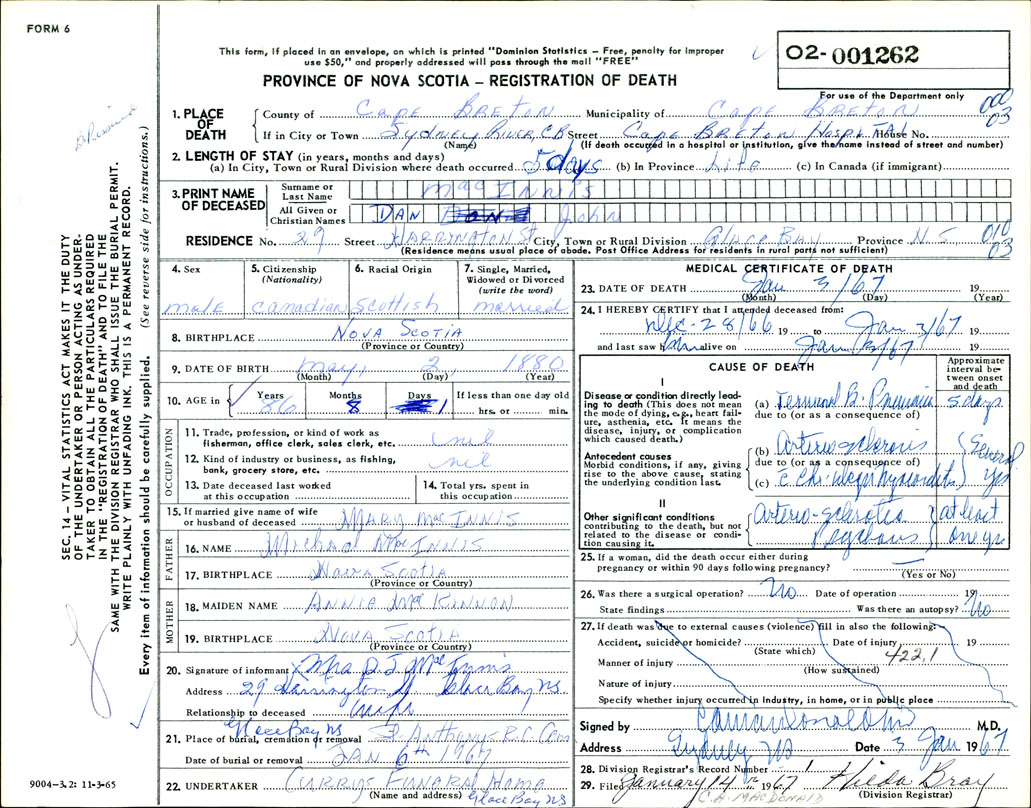 FORM 6
This form, if placed in an envelope, on which is printed "Dominion Statistics – Free, penalty for improper
use $50," and properly addressed will pass through the mail "FREE"
PROVINCE OF NOVA SCOTIA – REGISTRATION OF DEATH
02-001262
For use of the Department only
000
03
1. PLACE OF DEATH
County of Cape Breton Municipality of Cape Breton
If in City or Town Sydney River, C.B Street Cape Breton Hospital House No.
(Name) (If death occurred in a hospital or institution, give the name instead of street and number)
2. LENGTH OF STAY (in years, months and days)
(a) In City, Town or Rural Division where death occurred 5 days (b) In Province Life (c) In Canada (if immigrant)
3. PRINT NAME OF DECEASED
Surname or Last Name MacInnis
All Given or Christian Names Dan John
RESIDENCE No. 29 Street Harrington St City, Town or Rural Division Glace Bay Province N S
010
03
(Residence means usual place of abode. Post Office Address for residents in rural parts not sufficient)
4. Sex male
5. Citizenship (Nationality) Canadian
6. Racial Origin Scottish
7. Single, Married, Widowed or Divorced (write the word) married
8. BIRTHPLACE Nova Scotia
(Province or Country)
9. DATE OF BIRTH May, 2, 1880
(Month) (Day) (Year)
10. AGE in Years 86 Months 8 Days 1 If less than one day old hrs. or min.
OCCUPATION
11. Trade, profession, or kind of work as fisherman, office clerk, sales clerk, etc. nil
12. Kind of industry or business, as fishing, bank, grocery store, etc. nil
13. Date deceased last worked at this occupation
14. Total yrs. spent in this occupation
15. If married give name of wife or husband of deceased Mary MacInnis
FATHER
16. NAME Michael MacInnis
17. BIRTHPLACE Nova Scotia
(Province or Country)
MOTHER
18. MAIDEN NAME Annie McKinnon
19. BIRTHPLACE Nova Scotia
(Province or Country)
20. Signature of informant Mrs D J MacInnis
Address 29 Harrington St Glace Bay NS
Relationship to deceased wife
Glace Bay NS
21. Place of burial, cremation or removal St Anthonys R.C. Cem
Date of burial or removal Jan 6th 1967
22. UNDERTAKER Currys Funeral Home
(Name and address) Glace Bay NS
MEDICAL CERTIFICATE OF DEATH
23. DATE OF DEATH Jan 3/67 19
(Month) (Day) (Year)
24. I HEREBY CERTIFY that I attended deceased from:
Dec-28/66 19 to Jan 3/67 19
and last saw him alive on Jan 3/67 19
CAUSE OF DEATH
Approximate interval between onset and death
I
Disease or condition directly leading to death (This does not mean the mode of dying, e.g., heart failure, asthenia, etc. It means the disease, injury, or complication which caused death.)
(a) Terminal Br. Pneumonia 5 days
due to (or as a consequence of)
Antecedent causes
Morbid conditions, if any, giving rise to the above cause, stating the underlying condition last.
(b) Arteriosclerosis Several
due to (or as a consequence of)
(c) yrs
II
Other significant conditions contributing to the death, but not related to the disease or condition causing it.
Arterio-sclerotic at least
Psychosis one yr
25. If a woman, did the death occur either during pregnancy or within 90 days following pregnancy?
(Yes or No)
26. Was there a surgical operation? No Date of operation 19
State findings Was there an autopsy? No
27. If death was due to external causes (violence) fill in also the following:–
Accident, suicide or homicide? Date of injury 19
(State which)
422.1
Manner of injury
(How sustained)
Nature of injury
Specify whether injury occurred in industry, in home, or in public place
Signed by M.D.
Address Sydney NS Date 3 Jan 1967
28. Division Registrar's Record Number 1
29. Filed January 14th 1967 Hilda Bray
C.A. MACDONALD (Division Registrar)
SEC. 14 – VITAL STATISTICS ACT MAKES IT THE DUTY
OF THE UNDERTAKER OR PERSON ACTING AS UNDER-
TAKER TO OBTAIN ALL THE PARTICULARS REQUIRED
IN THE "REGISTRATION OF DEATH" AND TO FILE THE
SAME WITH THE DIVISION REGISTRAR WHO SHALL ISSUE THE BURIAL PERMIT.
WRITE PLAINLY WITH UNFADING INK. THIS IS A PERMANENT RECORD.
Every item of information should be carefully supplied. (See reverse side for instructions.)
9004-3.2: 11-3-65